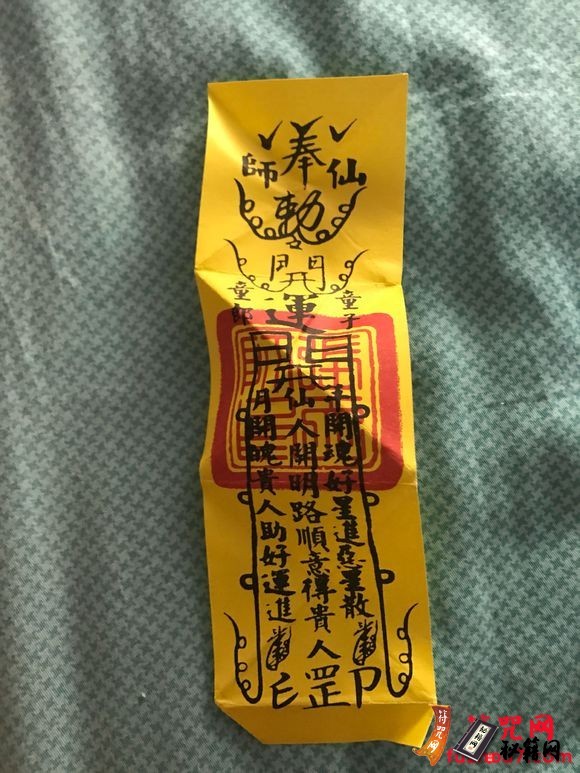 奉
仙師
勅令
開
運
童子
童郎
開魂好星進惡星散
仙人開明路順意得貴人
月開魄貴人助好運進
罡
符咒网
秘籍网
咒网
秘籍网